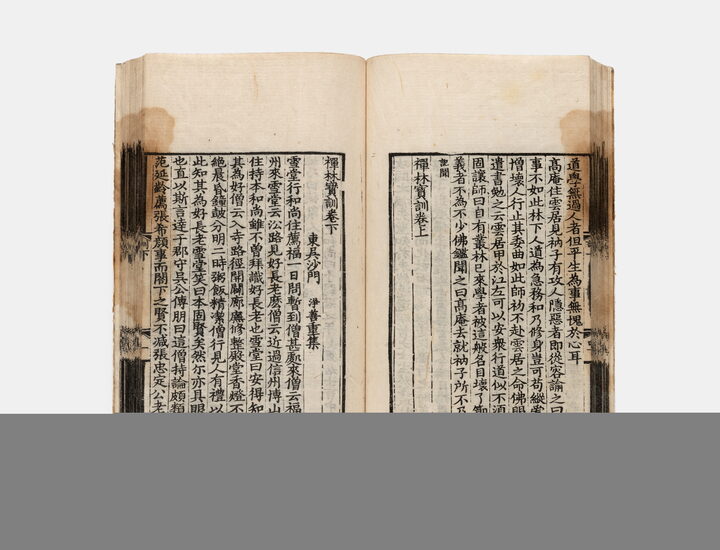 道學無過人者但平生為事無愧於心耳
高庵住雲居見衲子有攻人隱惡者即從容諭之曰
事不如此林下人道為急務和乃修身豈可苟縱愛
憎壞人行止其委曲如此師初不赴雲居之命佛眼
遺書勉之云雲居甲於江左可以安衆行道似不須
固讓師曰自有叢林已來學者被這般名目壞了節
義者不為不少佛鑑聞之曰高庵去就衲子所不及
記聞
禪林寶訓卷上
禪林寶訓卷下
東吳沙門 淨善重集
雪堂行和尚住薦福一日問暫到僧甚處來僧云福
州來雪堂云沿路見好長老麽僧云近過信州博山
住持本和尚雖不曾拜識好長老也雪堂曰安得知
其為好僧云入寺路徑開闢廊廡修整殿堂香燈不
絕晨昏鐘鼓分明二時粥飯精潔僧行見人有禮以
此知其為好長老雪堂笑曰本固賢矣然尓亦具眼
也直以斯言達于郡守吳公傅朋曰這僧持論頗類
范延齡薦張希顔事而閣下之賢不減張忠定公老